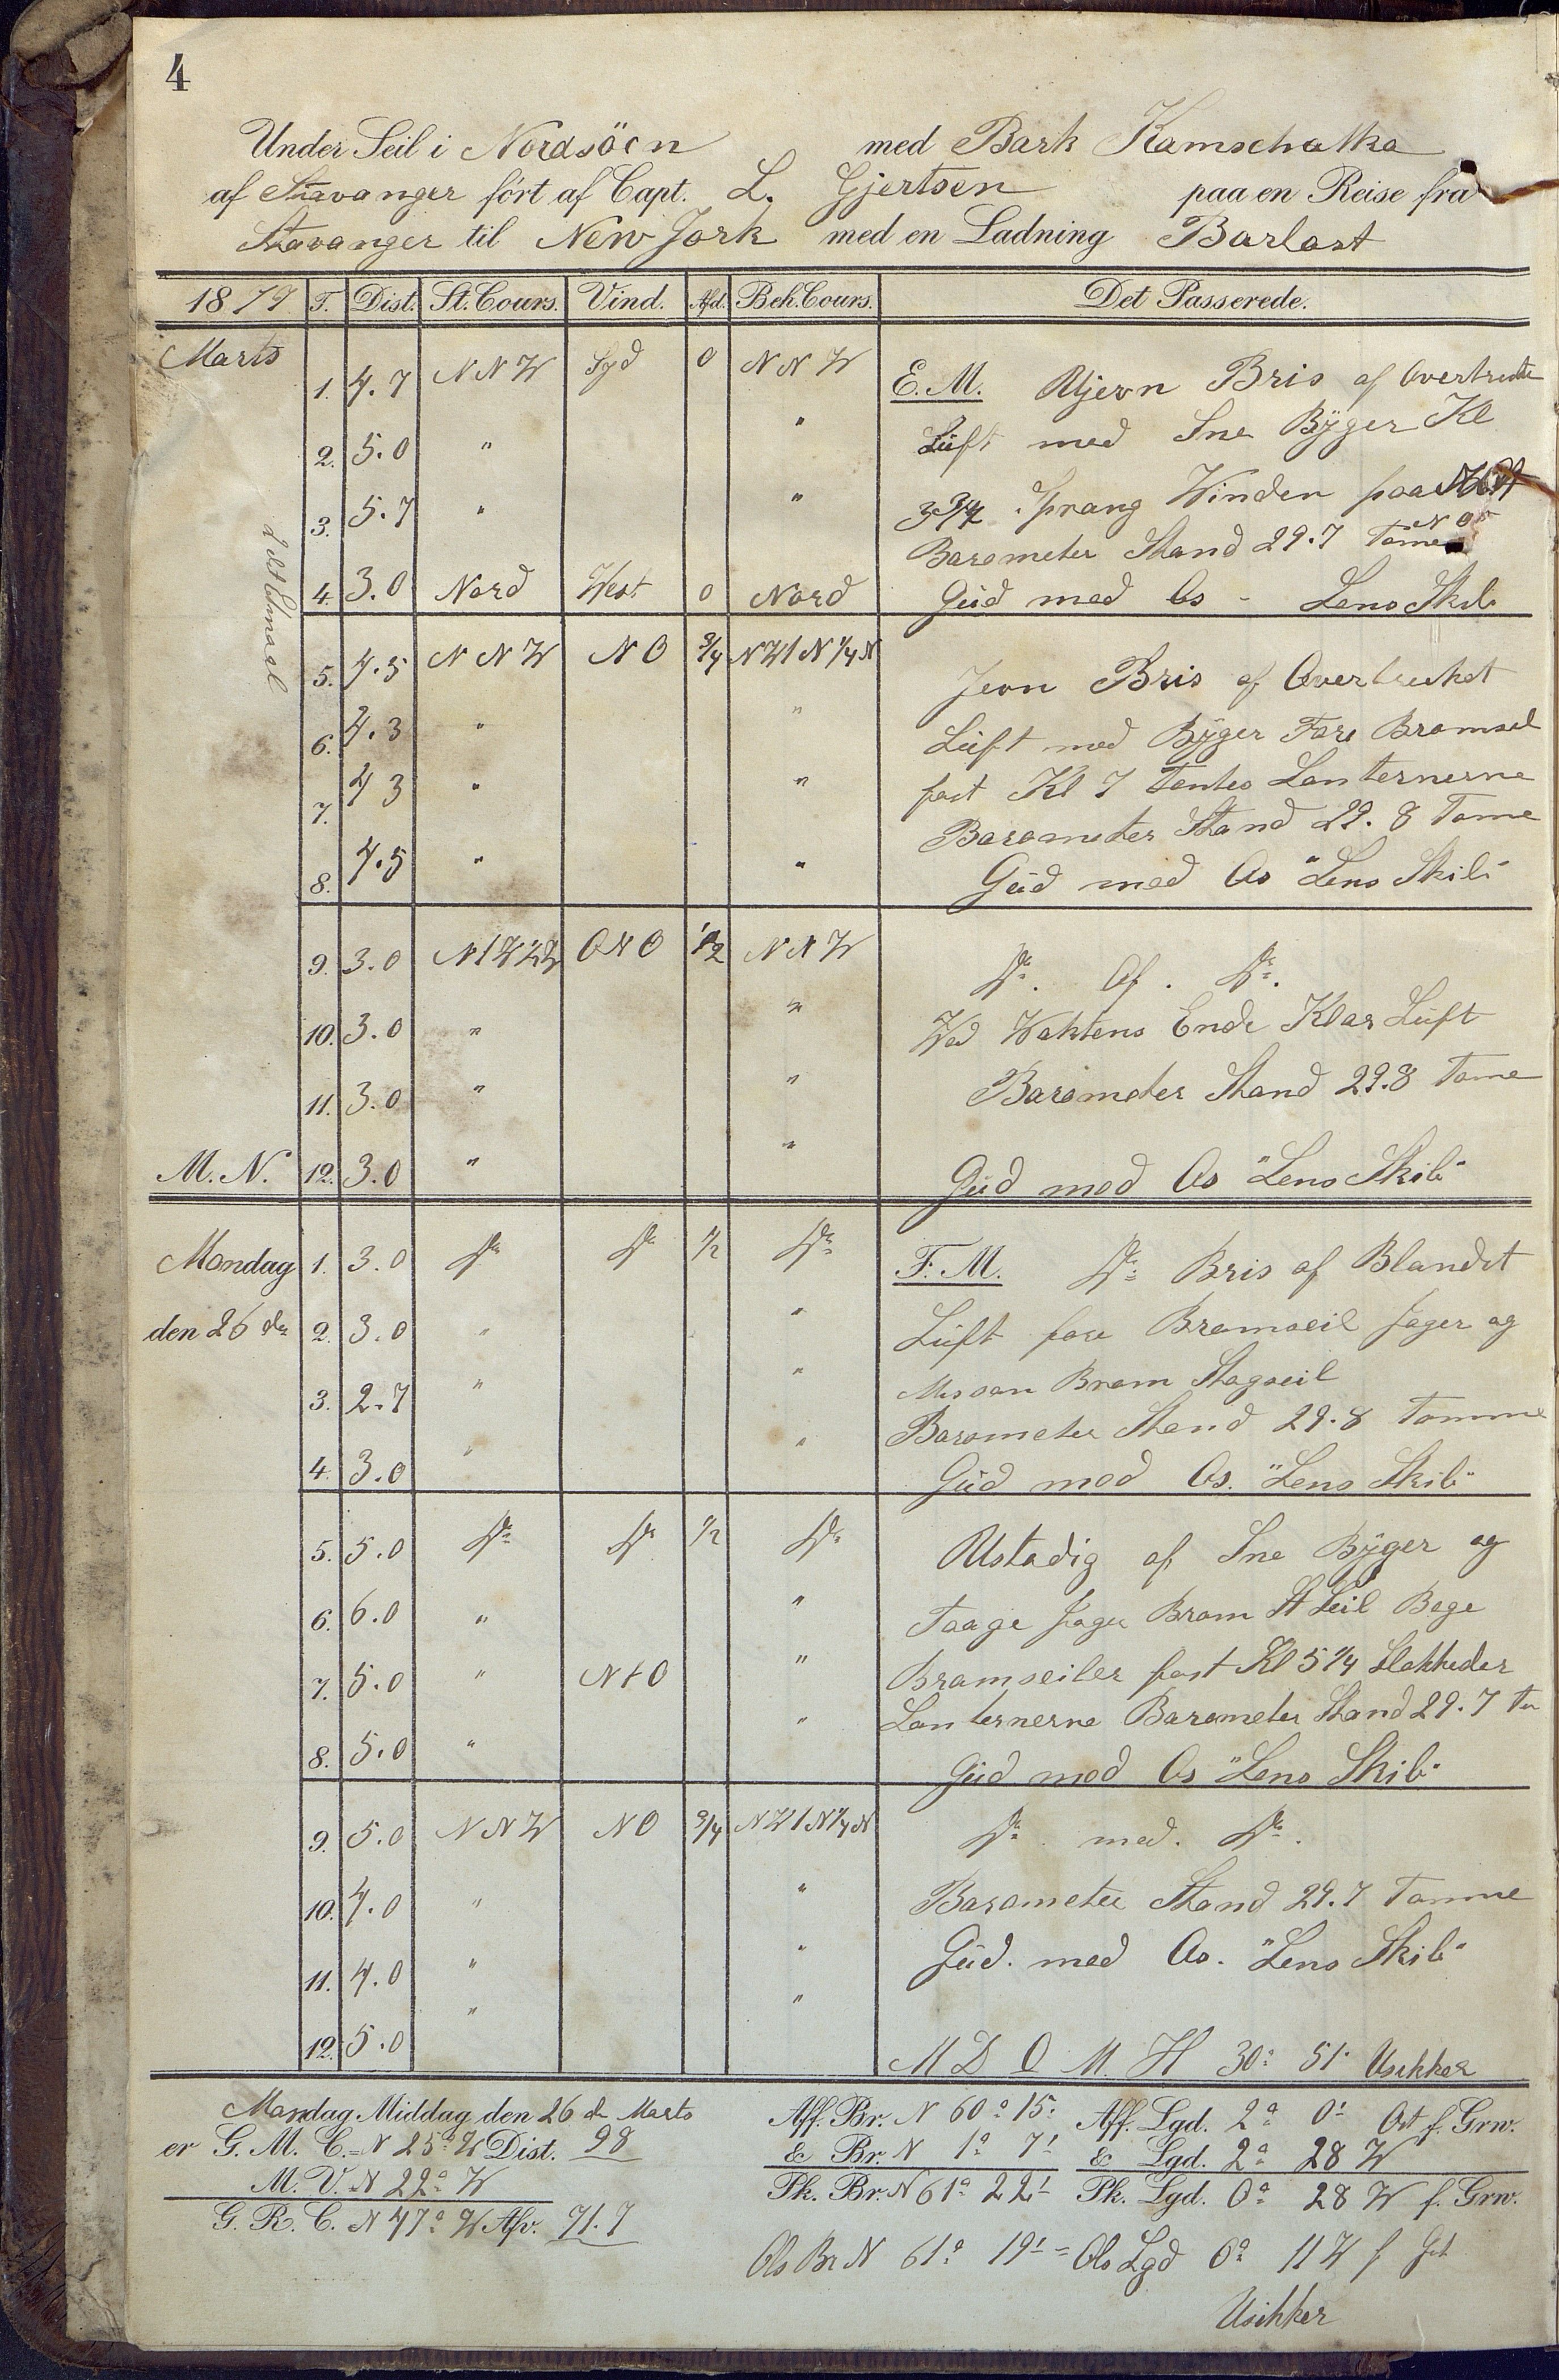 4
Under Seil i Nordsöen med Bark Kamschatka
af Stavanger fört af Capt. L. Gjertsen paa en Reise fra
Stavanger til New Jork med en Ladning Barlast
1879 T. Dist. St. Cours. Vind. Afd. Beh. Cours. Det Passerede.
Marts 1. 4.7 NNW Syd 0 NNW E.M. Ujevn Bris af Overtrukte
2. 5.0 " " Lüft med Sne Byger Kl
3. 5.7 " " 3 3/4 Sprang Winden paa
Barometer Stand 29.7 Tome
4. 3.0 Nord West 0 Nord Gud med Os - Lens Skib
5. 4.5 NNW NO 3/4 NWtN 1/4 N Jevn Bris af Overtrukket
6. 4.3 " " Lüft med Byger Fore Bramseil
7. 4 3 " " fast Kl 7 Tentes Lanternerne
Barometer Stand 29.8 Tome
8. 4.5 " " Güd med Os "Lens Skib"
9. 3.0 NtW 1/2 W ONO 1/2 NNW Do. Af. Do.
10. 3.0 " " Ved Waktens Ende Klar Lüft
11. 3.0 " " Barometer Stand 29.8 Tome
M. N. 12. 3.0 " " Güd med Os "Lens Skib"
Mandag 1. 3.0 Do Do 1/2 Do F.M. Do Bris af Blandet
den 26 de 2. 3.0 " " Lüft fore Bramseil Jager og
3. 2.7 " " Messan Bram Stagseil
Barometer Stand 29.8 Tomme
4. 3.0 " " Güd med Os. "Lens Skib"
5. 5.0 Do Do 1/2 Do Ustadig af Sne Byger og
6. 6.0 " " Taage Jager Bram St Seil Bege
7. 5.0 " NtO " Bramseiler fast Kl 5 1/4 Slekkedes
Lanternerne Barometer Stand 29.7 To
8. 5.0 " " Güd med Os "Lens Skib"
9. 5.0 NNW NO 3/4 NWtN 1/4 N Do. med. Do.
10. 4.0 " " Barometer Stand 29.7 Tomme
11. 4.0 " " Güd. med Os. "Lens Skib"
12. 5.0 " " M D O M. H 30° 51' Usikker
Mandag Middag den 26 de Marts Aff. Br. N 60° 15' Aff. Lgd. 2° 0' Ost f. Grw.
er G. M. C. = N 25° W Dist. 98 & Br. N 1° 7' & Lgd. 2° 28 W
M. V. N 22° W Pk. Br. N 61° 22' Pk. Lgd. 0° 28 W f. Grw.
G. R. C. N 47° W Afv. 71.7
Obs Br N 61° 19' = Obs Lgd 0° 11 W f
Usikker